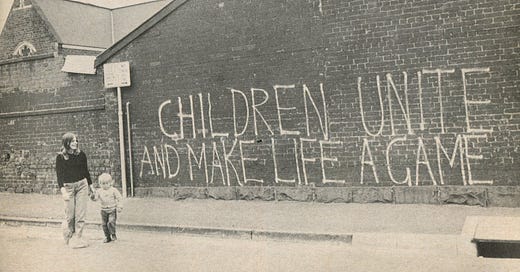 CHILDREN UNITE
AND MAKE LIFE A GAME